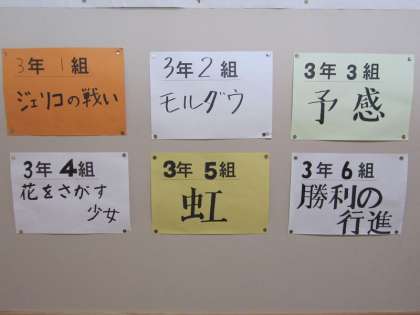 3年 1組
ジェリコの戦い
3年2組
モルダウ
3年3組
予感
3年4組
花をさがす
少女
3年5組
虹
3年6組
勝利の
行進